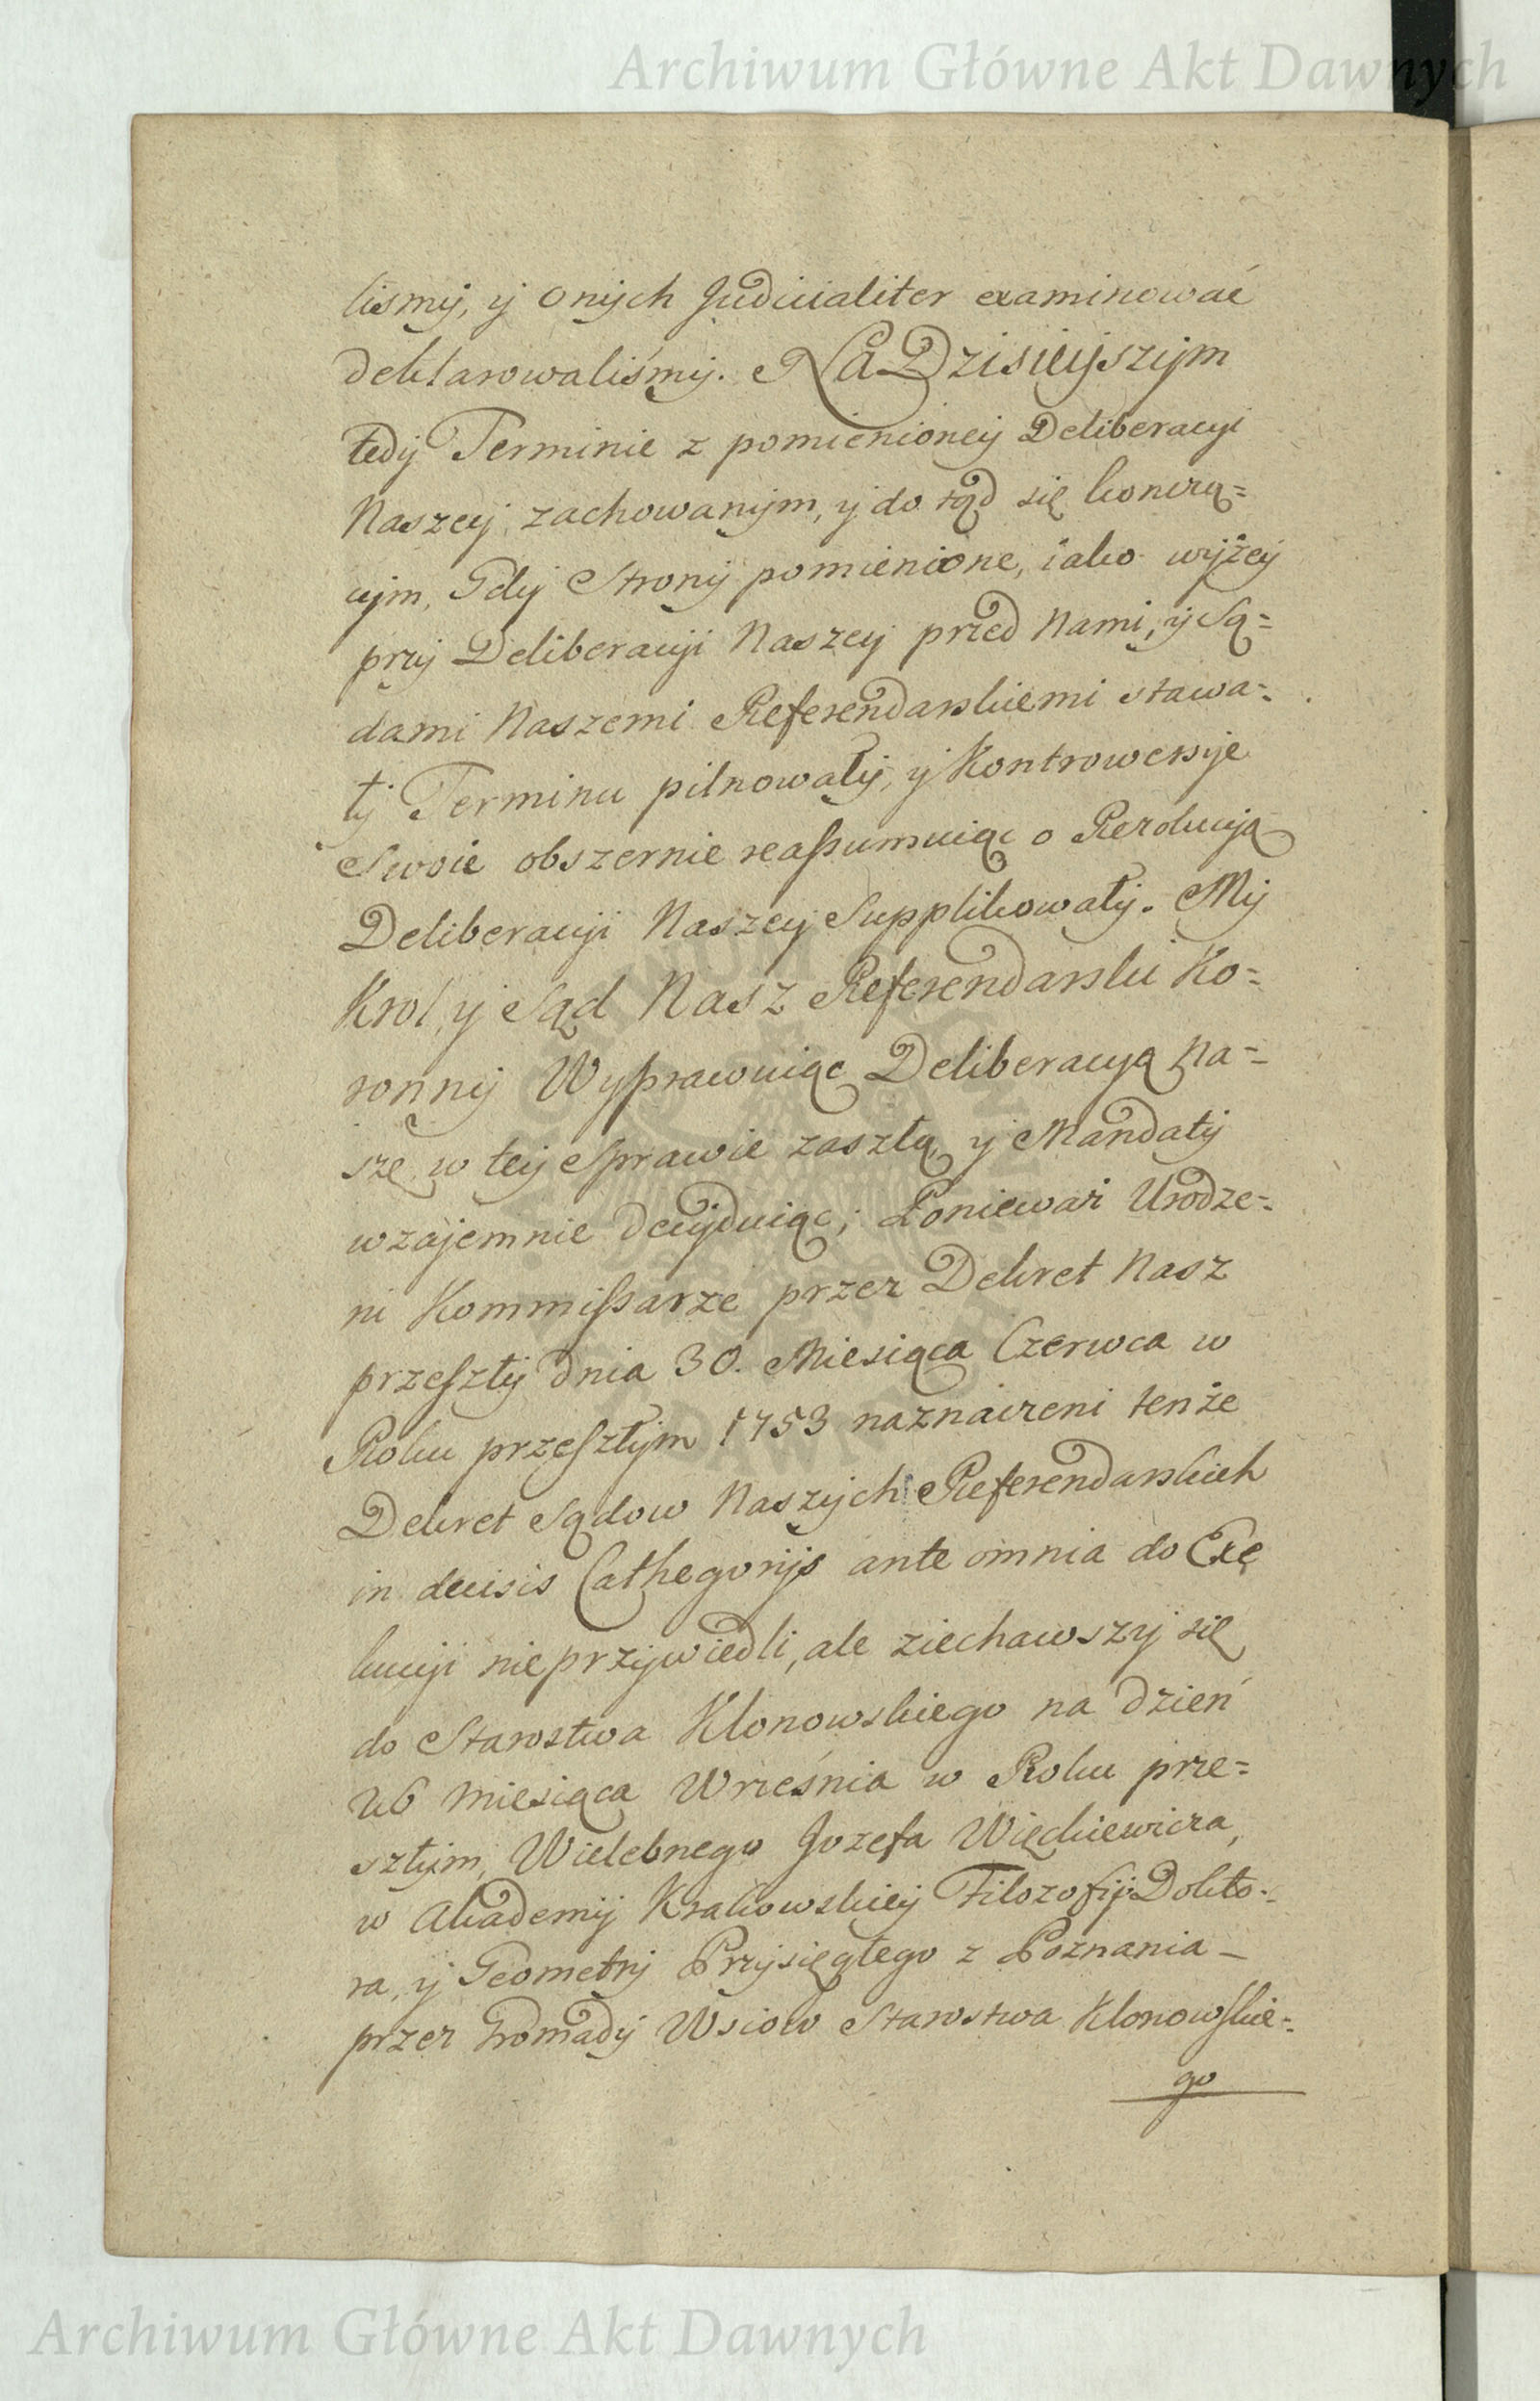 Archiwum Główne Akt Dawnych
lismÿ, ÿ onÿch Judicialiter examinować
deklarowaliśmÿ. Na Dzisieÿszÿm
tedÿ Terminie z pomienioneÿ Deliberacÿi
Naszeÿ zachowanÿm, ÿ do tąd się konczą=
cÿm, Gdÿ Stronÿ pomienione, iako wÿżeÿ
przÿ Deliberacÿi Naszeÿ przed Nami, ÿ Są=
dami Naszemi Referendarskiemi stawa=
łÿ Terminu pilnowałÿ, ÿ Kontrowersÿe
Swoie obszernie reassumuiąc o Rezolucÿą
Deliberacÿi Naszeÿ Supplikowałÿ. Mÿ
Krol, ÿ Sąd Nasz Referendarski Ko=
ronnÿ Wyprawuiąc Deliberacyą na=
szę w teÿ Sprawie zaszłą ÿ Mandatÿ
wzajemnie decÿduiąc; Ponieważ Urodze=
ni Kommissarze przez Dekret Nasz
przeszłÿ dnia 30. Miesiąca Czerwca w
Roku przeszłÿm 1753 naznaczeni tenże
Dekret Sądow Naszÿch Referendarskich
in decisis Cathegorÿs ante omnia do Exe
kucÿi nieprzÿwiedli, ale ziechawszÿ się
do Starostwa Klonowskiego na dzień
26 Miesiąca Września w Roku prze=
szłÿm, Wielebnego Jozefa Więckiewicza,
w Akademÿ Krakowskieÿ Filozofÿ Dokto=
ra, ÿ Geometrÿ Przÿsięgłego z Poznania
przez Gromadÿ Wsiow Starostwa Klonowskie=
go
Archiwum Główne Akt Dawnych